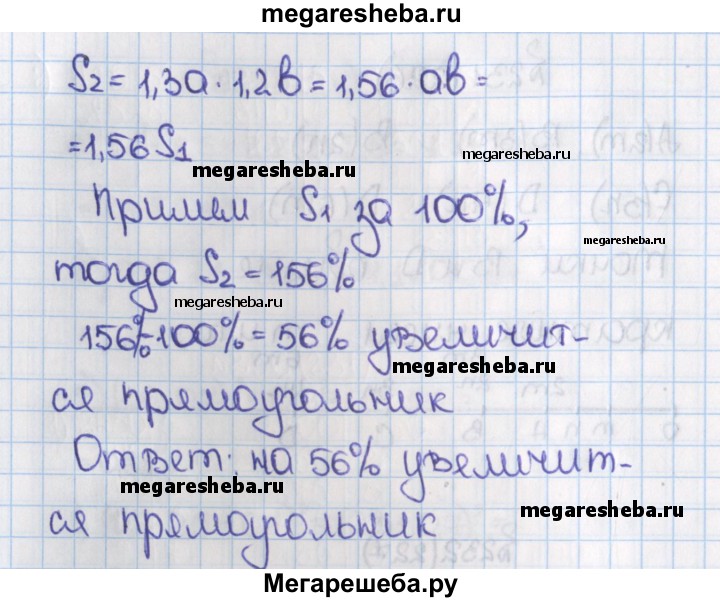 megaresheba.ru
S2 = 1,3a · 1,2b = 1,56 · ab =
= 1,56 S1
megaresheba.ru
megaresheba.ru
Примем S1 за 100%,
megaresheba.ru
тогда S2 = 156%
megaresheba.ru
156% - 100% = 56% увеличит-
megaresheba.ru
ся прямоугольник
Ответ: на 56% увеличит-
megaresheba.ru
megaresheba.ru
ся прямоугольник
Мегарешеба.ру